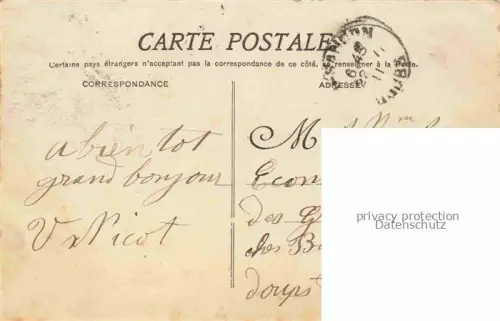 CARTE POSTALE
Certains pays étrangers n'acceptant pas la correspondance de ce côté, se renseigner à la Poste.
CORRESPONDANCE
ADRESSE
a bientot
grand bonjour
V Nicot
M et Mme
Econ
des G
des B
doups
privacy protection
Datenschutz